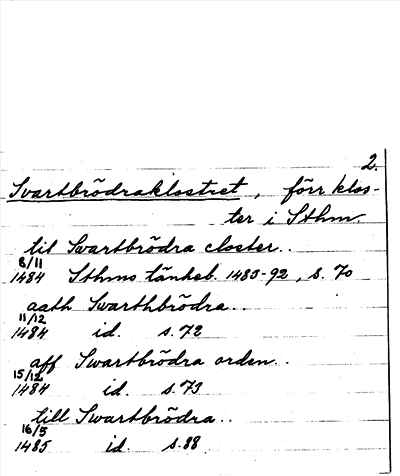 2.
Svartbrödraklostret, förr klos-
ter i Sthm
til Swartbrödra closter..
8/11
1484 Sthms tänkeb. 1483-92, s. 70
aath Swarthbrödra..
11/12
1484 id. s. 72
aff Swartbrödra orden..
15/12
1484 id. s. 73
till Swartbrödra..
16/5
1485 id. s. 88